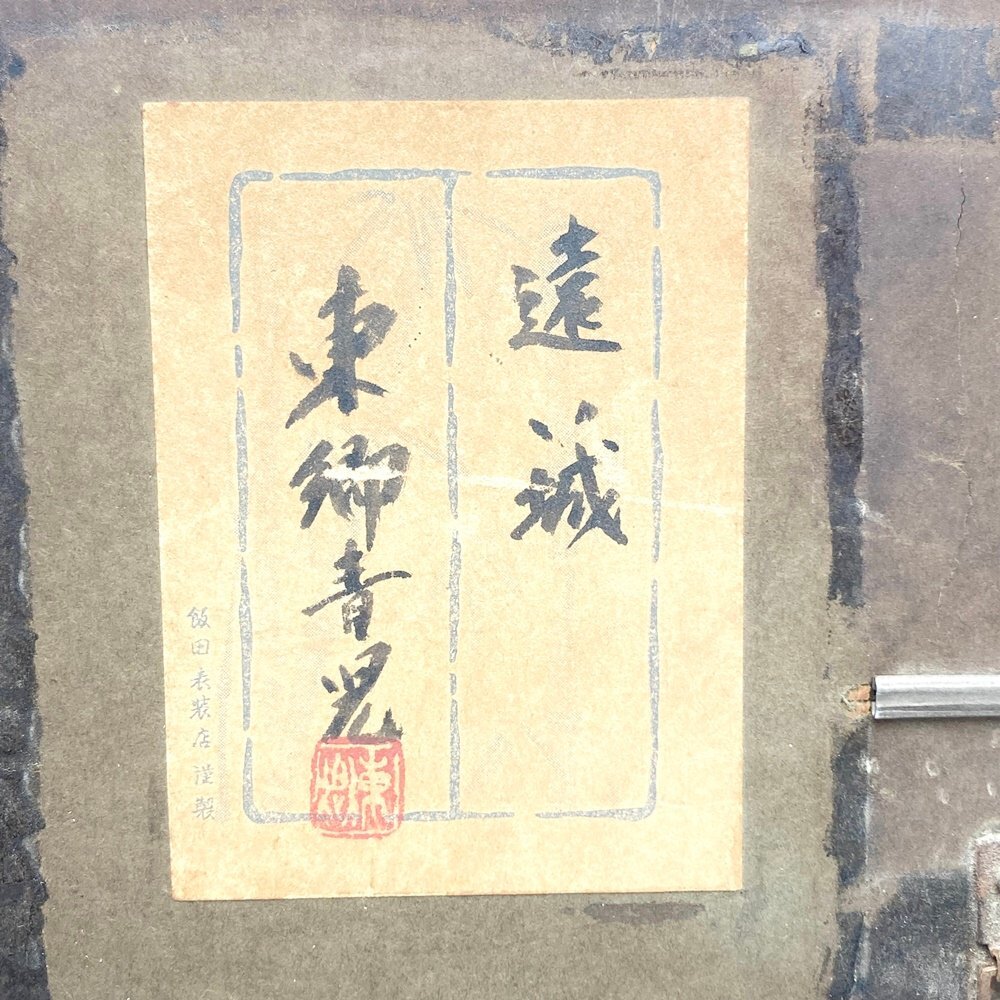 遠
東郷青児
飯田表装店謹製